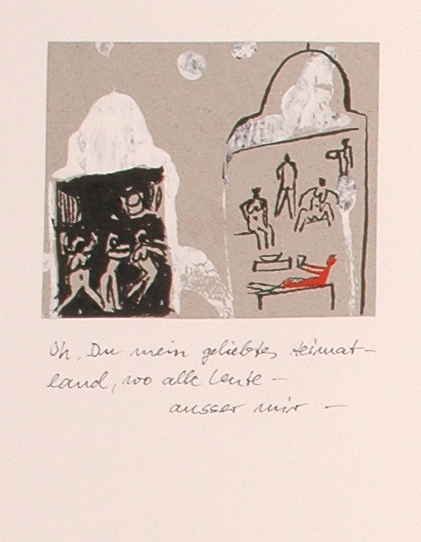 Oh, Du mein geliebtes Heimat-
land, wo alle Leute -
ausser mir -